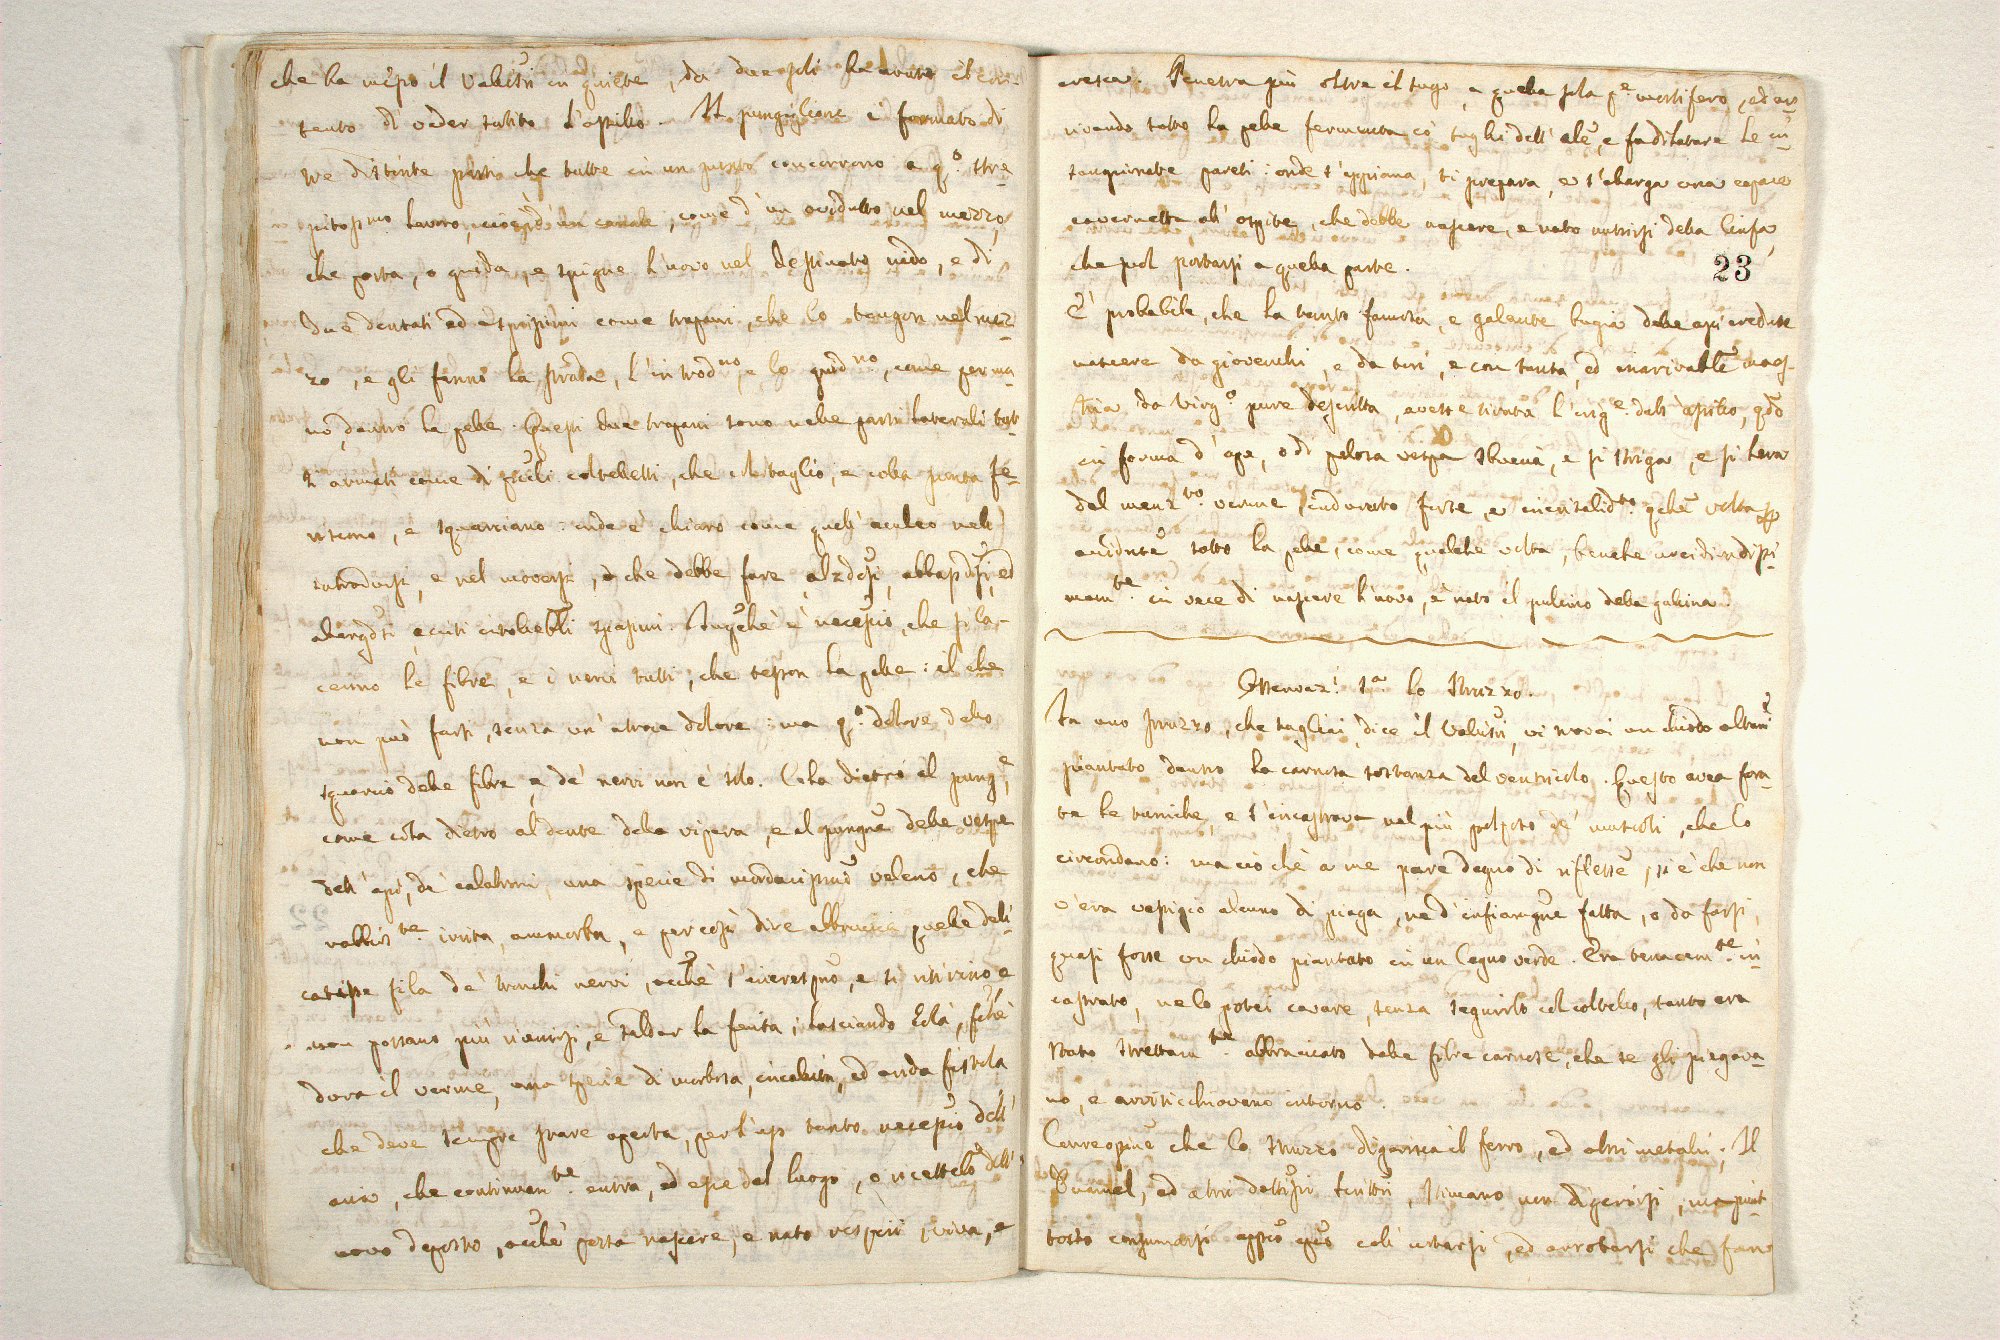 che ha messo il Valisn̄i in quiete, da due soli ha avuto il con-
tento di veder tutto l'assillo. Il pungiglione è formato di
tre distinte parti che tutte in un punto concorrono a q.º stre-
pitoss.mo lavoro, cioè d'un canale, come d'un ovidutto nel mezzo,
che porta, o guida, e spigne l'uovo nel destinato nido, e di
due dentati ed asprissimi come trapani, che lo tengon nel mez-
zo, e gli fanno la strada, l'introd.no, e lo guid.no, come per ma-
no dentro la pelle. Questi due trapani sono nelle parti laterali tut-
ti armati come di piccoli coltelletti, che col taglio, e colla punta fe-
riscono, e squarciano: onde è chiaro come quell'aculeo nell'
introdursi, e nel moversi, che debbe fare, alzd̄osi, abbassd̄osi, ed
allargd̄osi, eciti intollerabili spasimi. Impochè è necess.io, che si la-
cerino le fibre, e i nervi tutti, che tesson la pelle: il che
non può farsi, senza un atroce dolore: ma q.º dolore dello
squarcio delle fibre e de' nervi non è solo. Cola dietro al pung.e,
come cola dietro al dente della vipera, e al pungig.ne delle vespe
dell'api, de' calabroni, una specie di mordacissimo veleno, che
rabbios.te irrita, ammorba, e per così dire abbrucia quelle deli-
catisse fila de' tronchi nervi, acchè s'increspino, e si ritirino e
non possano più riunirsi, e saldar la ferita; lasciando colà, finchè
dura il verme, una specie di morbosa, incallita, ed orrida fistola
che deve sempre stare aperta, per l'uso tanto necess.io dell'
aria, che continuam.te entra, ed esce dal luogo, o ricettacolo dell'
uovo deposto, acchè possa nascere, e nato respiri, viva, e
cresca. Penetra più oltre il sugo, a quella sola p.e mortifero, ed ar-
rivando sotto la pelle fermenta co' sughi dell'ale, e fa dilatare le in-
sanguinate pareti: onde s'appiana, si prepara, e s'allarga una capace
cavernetta all'ospite, che debbe nascere, e nato nutrirsi della linfa,
che suol portarsi a quella parte.
23
È probabile, che la tanto famosa, e galante bugia delle api credute
nascere da giovenchi, e da tori, e con tanta, ed inarrivabile maes-
tria da Virg.º pure descritta, avesse tirata l'orig.e dall'assillo, qd̄o
in forma d'ape, o di pelosa vespa sbuca, e si striga, e si leva
dal menz.to verme indurato forse, e incristalid.to qche volta
avidute sotto la pelle, come qualche volta, benchè
mam.te in vece di nascere l'uovo, è nato il pulcino della gallina.
Osservaz.e 1.a lo struzzo.
In uno struzzo, che tagliai, dice il Valisn̄i, vi trovai un chiodo altram̄e
piantato dentro la carnosa sostanza del ventricolo. Questo avea fora-
te le tuniche, e s'incastrava nel più polposo de' muscoli, che lo
circondano: ma ciò che a me pare degno di riflesse, si è che non
v'era vestigio alcuno di piaga, nè d'infiamg̅ne fatta, o da farsi,
quasi fosse un chiodo piantato in un legno verde. Era tenacem.te in-
castrato, nè lo potei cavare, senza seguirlo col coltello, tanto era
stato strettam.te abbracciato dalle fibre carnose, che se gli piegava-
no, e avviticchiavano intorno.
Corre opin̄e che lo struzzo digerisca il ferro, ed altri metalli; Il
ed altri dottissi scrittori, stimano non digerirsi, ma piut-
tosto consumarsi appo collì urtarsi, ed arrotarsi che fan